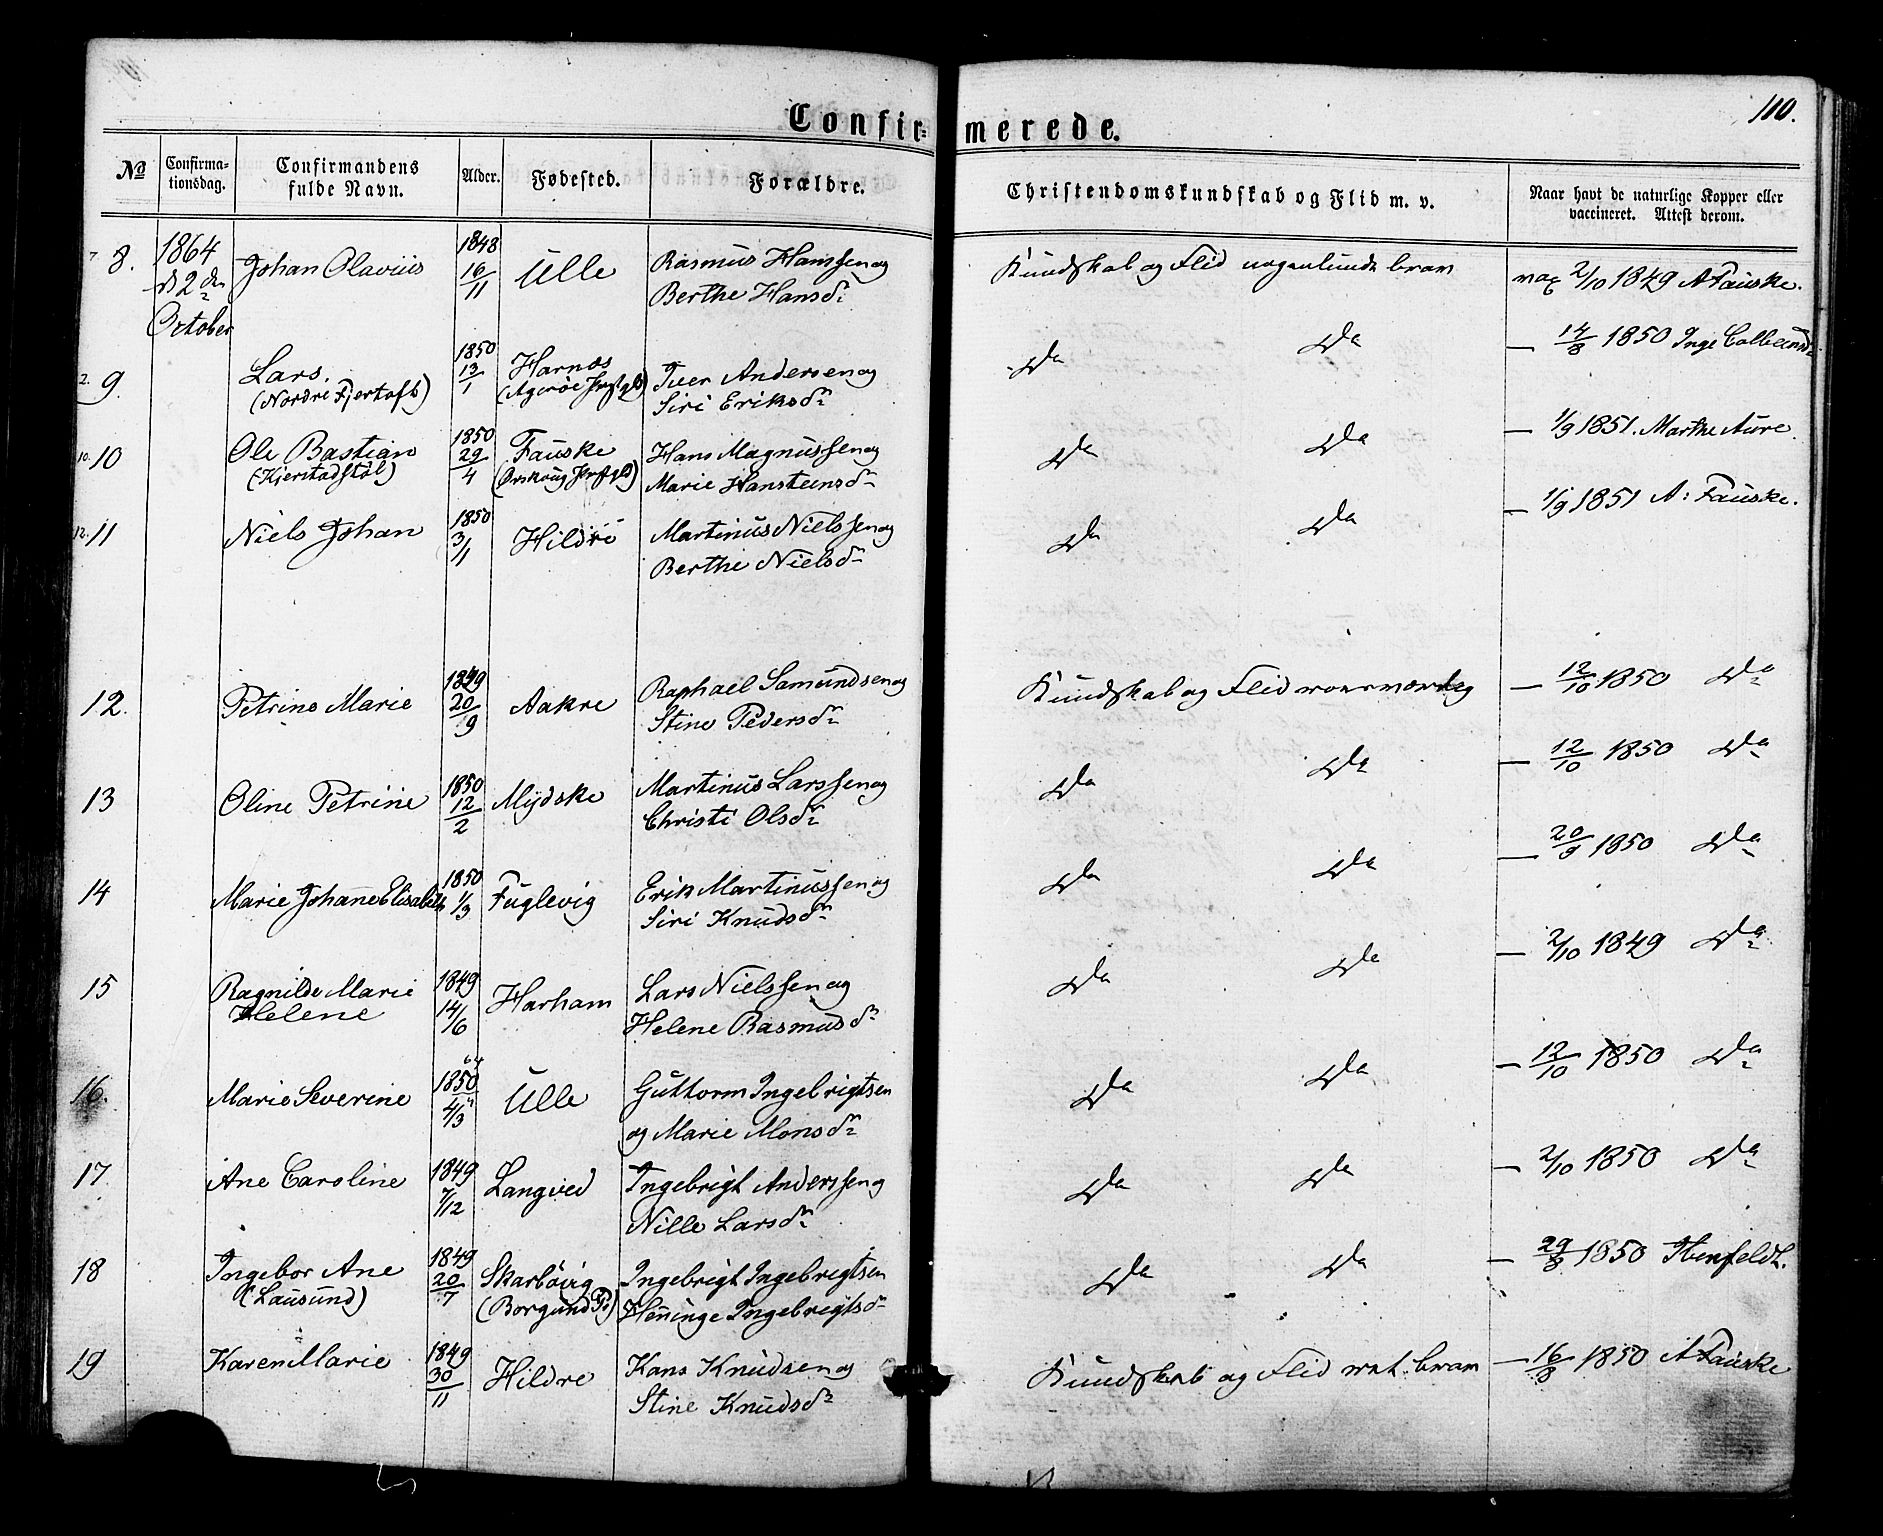 110.
Confir-merede.
No
Confirma-
tionsdag.
Confirmandens
fulde Navn.
Alder.
Fødested.
Forældre.
Christendomskundskab og Flid m. v.
Naar havt de naturlige Kopper eller
vaccineret. Attest derom.
7. 8. 1864 d 2den October Johan Olavius 1848 16/11 Ulle Rasmus Hanssen og Berthe Hansdr Kundskab og Flid nogenlunde brav vax 2/10 1849 A Fauske.
2. 9. Lars. (Nordre Fjertoft) 1850 13/1 Harnæs (Agerøe Prstgld) Iver Andersen og Siri Eriksdr Do Do — 14/8 1850 Inge
10. 10 Ole Bastian (Kjerstadstøl) 1850 29/4 Fauske (Ørskoug Prstgld) Hans Magnussen og Marie Hansteensdr Do Do — 1/9 1851. Marthe Aure.
12. 11 Niels Johan 1850 3/1 Hildre Martinus Nielssen og Berthe Nielsdr Do Do — 1/9 1851 A: Fauske.
12. Petrine Marie 1849 20/9 Aakre Raphael Samundsen og Stine Pedersdr Kundskab og Flid — 12/10 1850 Do
13 Oline Petrine 1850 12/2 Mydske Martinus Larssen og Christi Olsdr Do Do — 12/10 1850 Do
14 Marie Johanne Elisabeth 1850 1/3 Fuglevig Erik Martinussen og Siri Knudsdr Do Do — 20/9 1850 Do
15 Ragnilde Marie Helene 1849 14/6 Harham Lars Nielssen og Helene Rasmusdr Do Do — 2/10 1849 Do
16. Marie Severine 1850 64 4/3 Ulle Guttorm Ingebrigtsen og Marie Monsdr Do Do — 12/10 1850 Do
17. Ane Caroline 1849 7/12 Langved Ingebrigt Anderssen og Nille Larsdr Do Do — 2/10 1850 Do
18 Ingebor Ane (Lausund) 1849 20/7 Skarbøvig (Borgund P:) Ingebrigt Ingebrigtsen Heninge Ingebrigtsdr Do Do — 29/8 1850
19 Karen Marie 1849 30/11 Hildre Hans Knudsen og Stine Knudsdr Kundskab og Flid brav — 16/8 1850 A Fauske